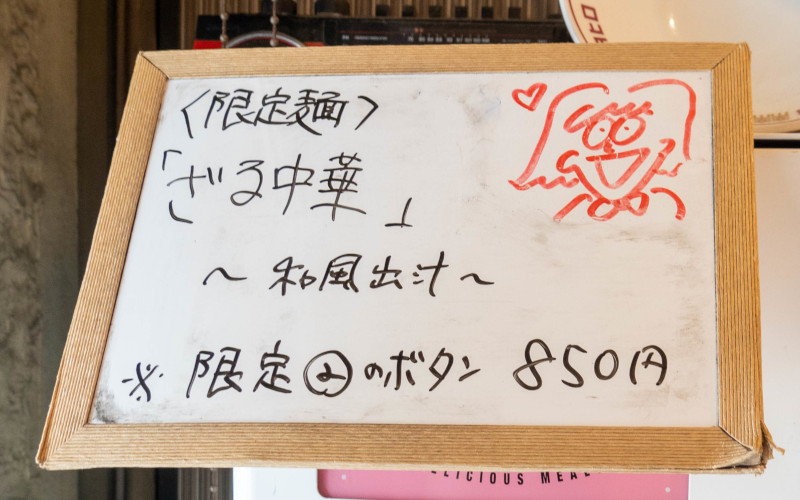 〈限定麺〉
「ざる中華」
～和風出汁～
※限定②のボタン 850円
DELICIOUS MEAL